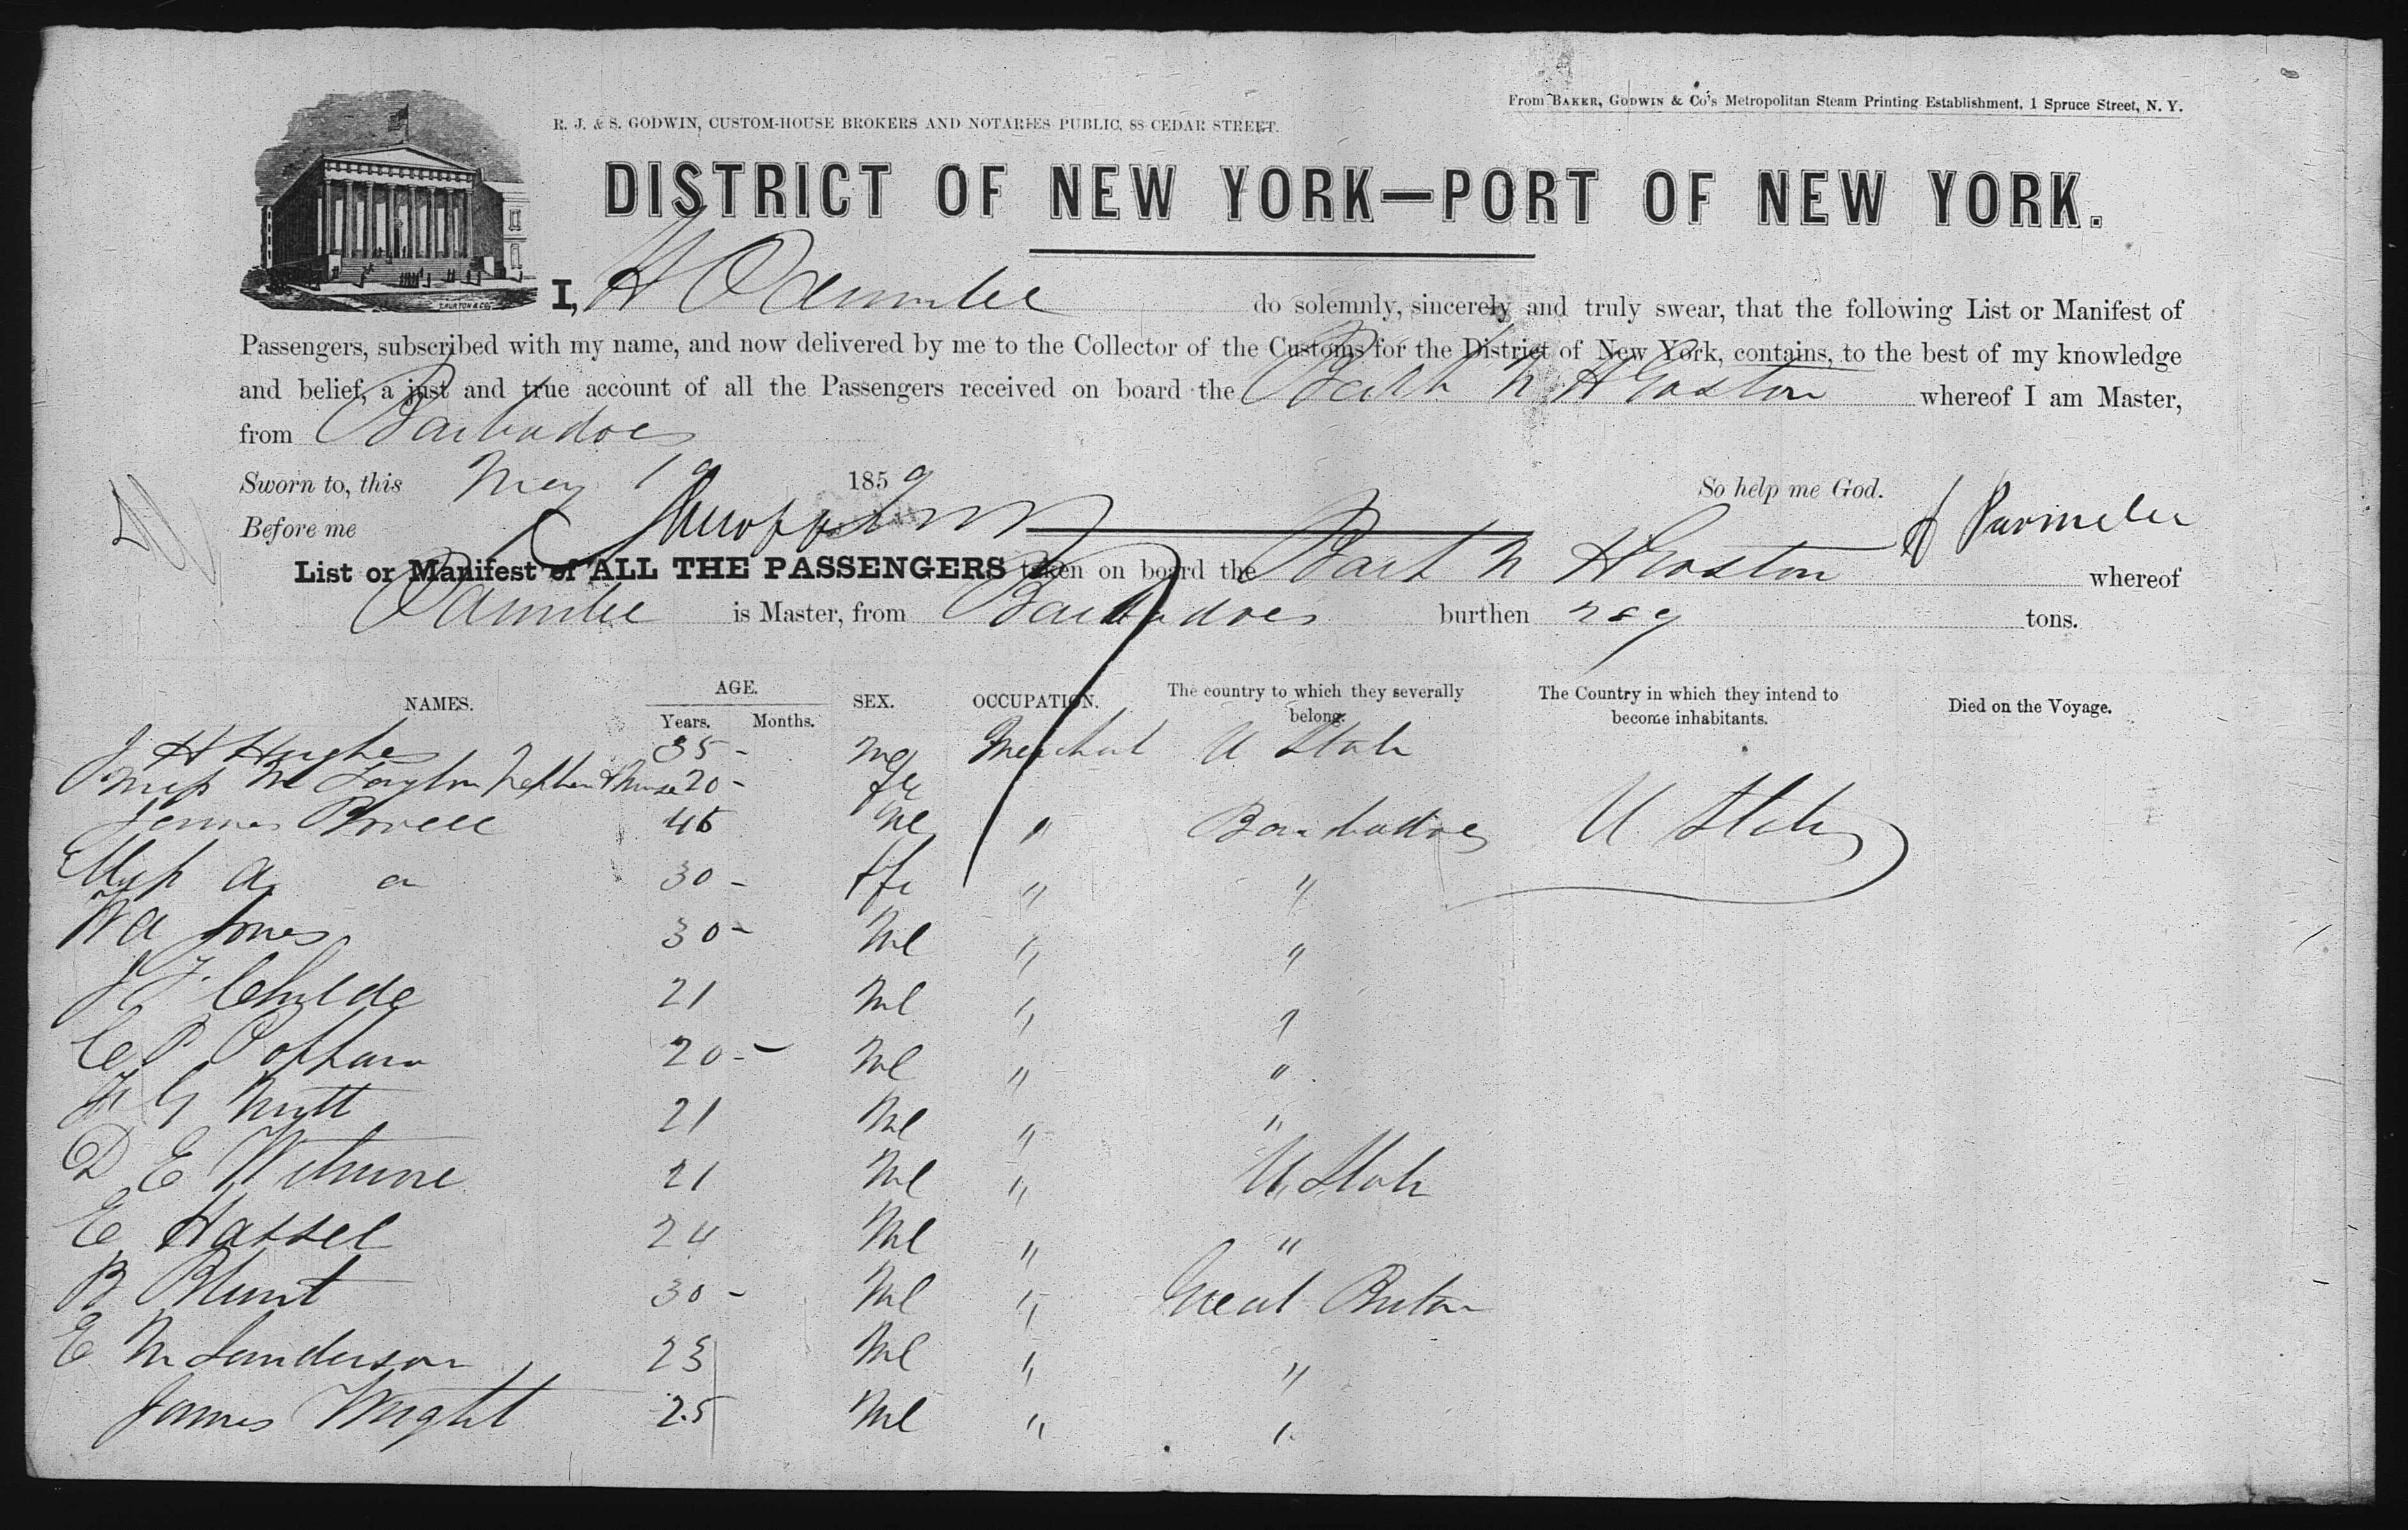 From BAKER, GODWIN & Co's Metropolitan Steam Printing Establishment, 1 Spruce Street, N. Y.
R. J. & S. GODWIN, CUSTOM-HOUSE BROKERS AND NOTARIES PUBLIC, 88 CEDAR STREET.
DISTRICT OF NEW YORK—PORT OF NEW YORK.
I, H do solemnly, sincerely and truly swear, that the following List or Manifest of
Passengers, subscribed with my name, and now delivered by me to the Collector of the Customs for the District of New York, contains, to the best of my knowledge
and belief, a just and true account of all the Passengers received on board the Bark N H Gaston whereof I am Master,
from Barbadoes
Sworn to, this May 19 1859 So help me God.
Before me H Parmelee
List or Manifest of ALL THE PASSENGERS taken on board the Bark N H Gaston whereof
is Master, from Barbadoes burthen tons.
NAMES. AGE. SEX. OCCUPATION. The country to which they severally belong. The Country in which they intend to become inhabitants. Died on the Voyage.
Years. Months.
J H Hughes 35 - Me Merchant U State
Miss M 20 - fe
James 45 Me " Barbadoes U States
Miss A 30 - fe " "
W A Jones 30 - Ml " "
J F Childe 21 Ml " "
C P 20 - - Ml " "
G Nutt 21 Ml " "
D E 21 Ml " U State
E Hassel 24 Ml " "
B Blunt 30 - Ml " Great Britan
E M Sanderson 23 Ml " "
James Wright 25 Ml " "